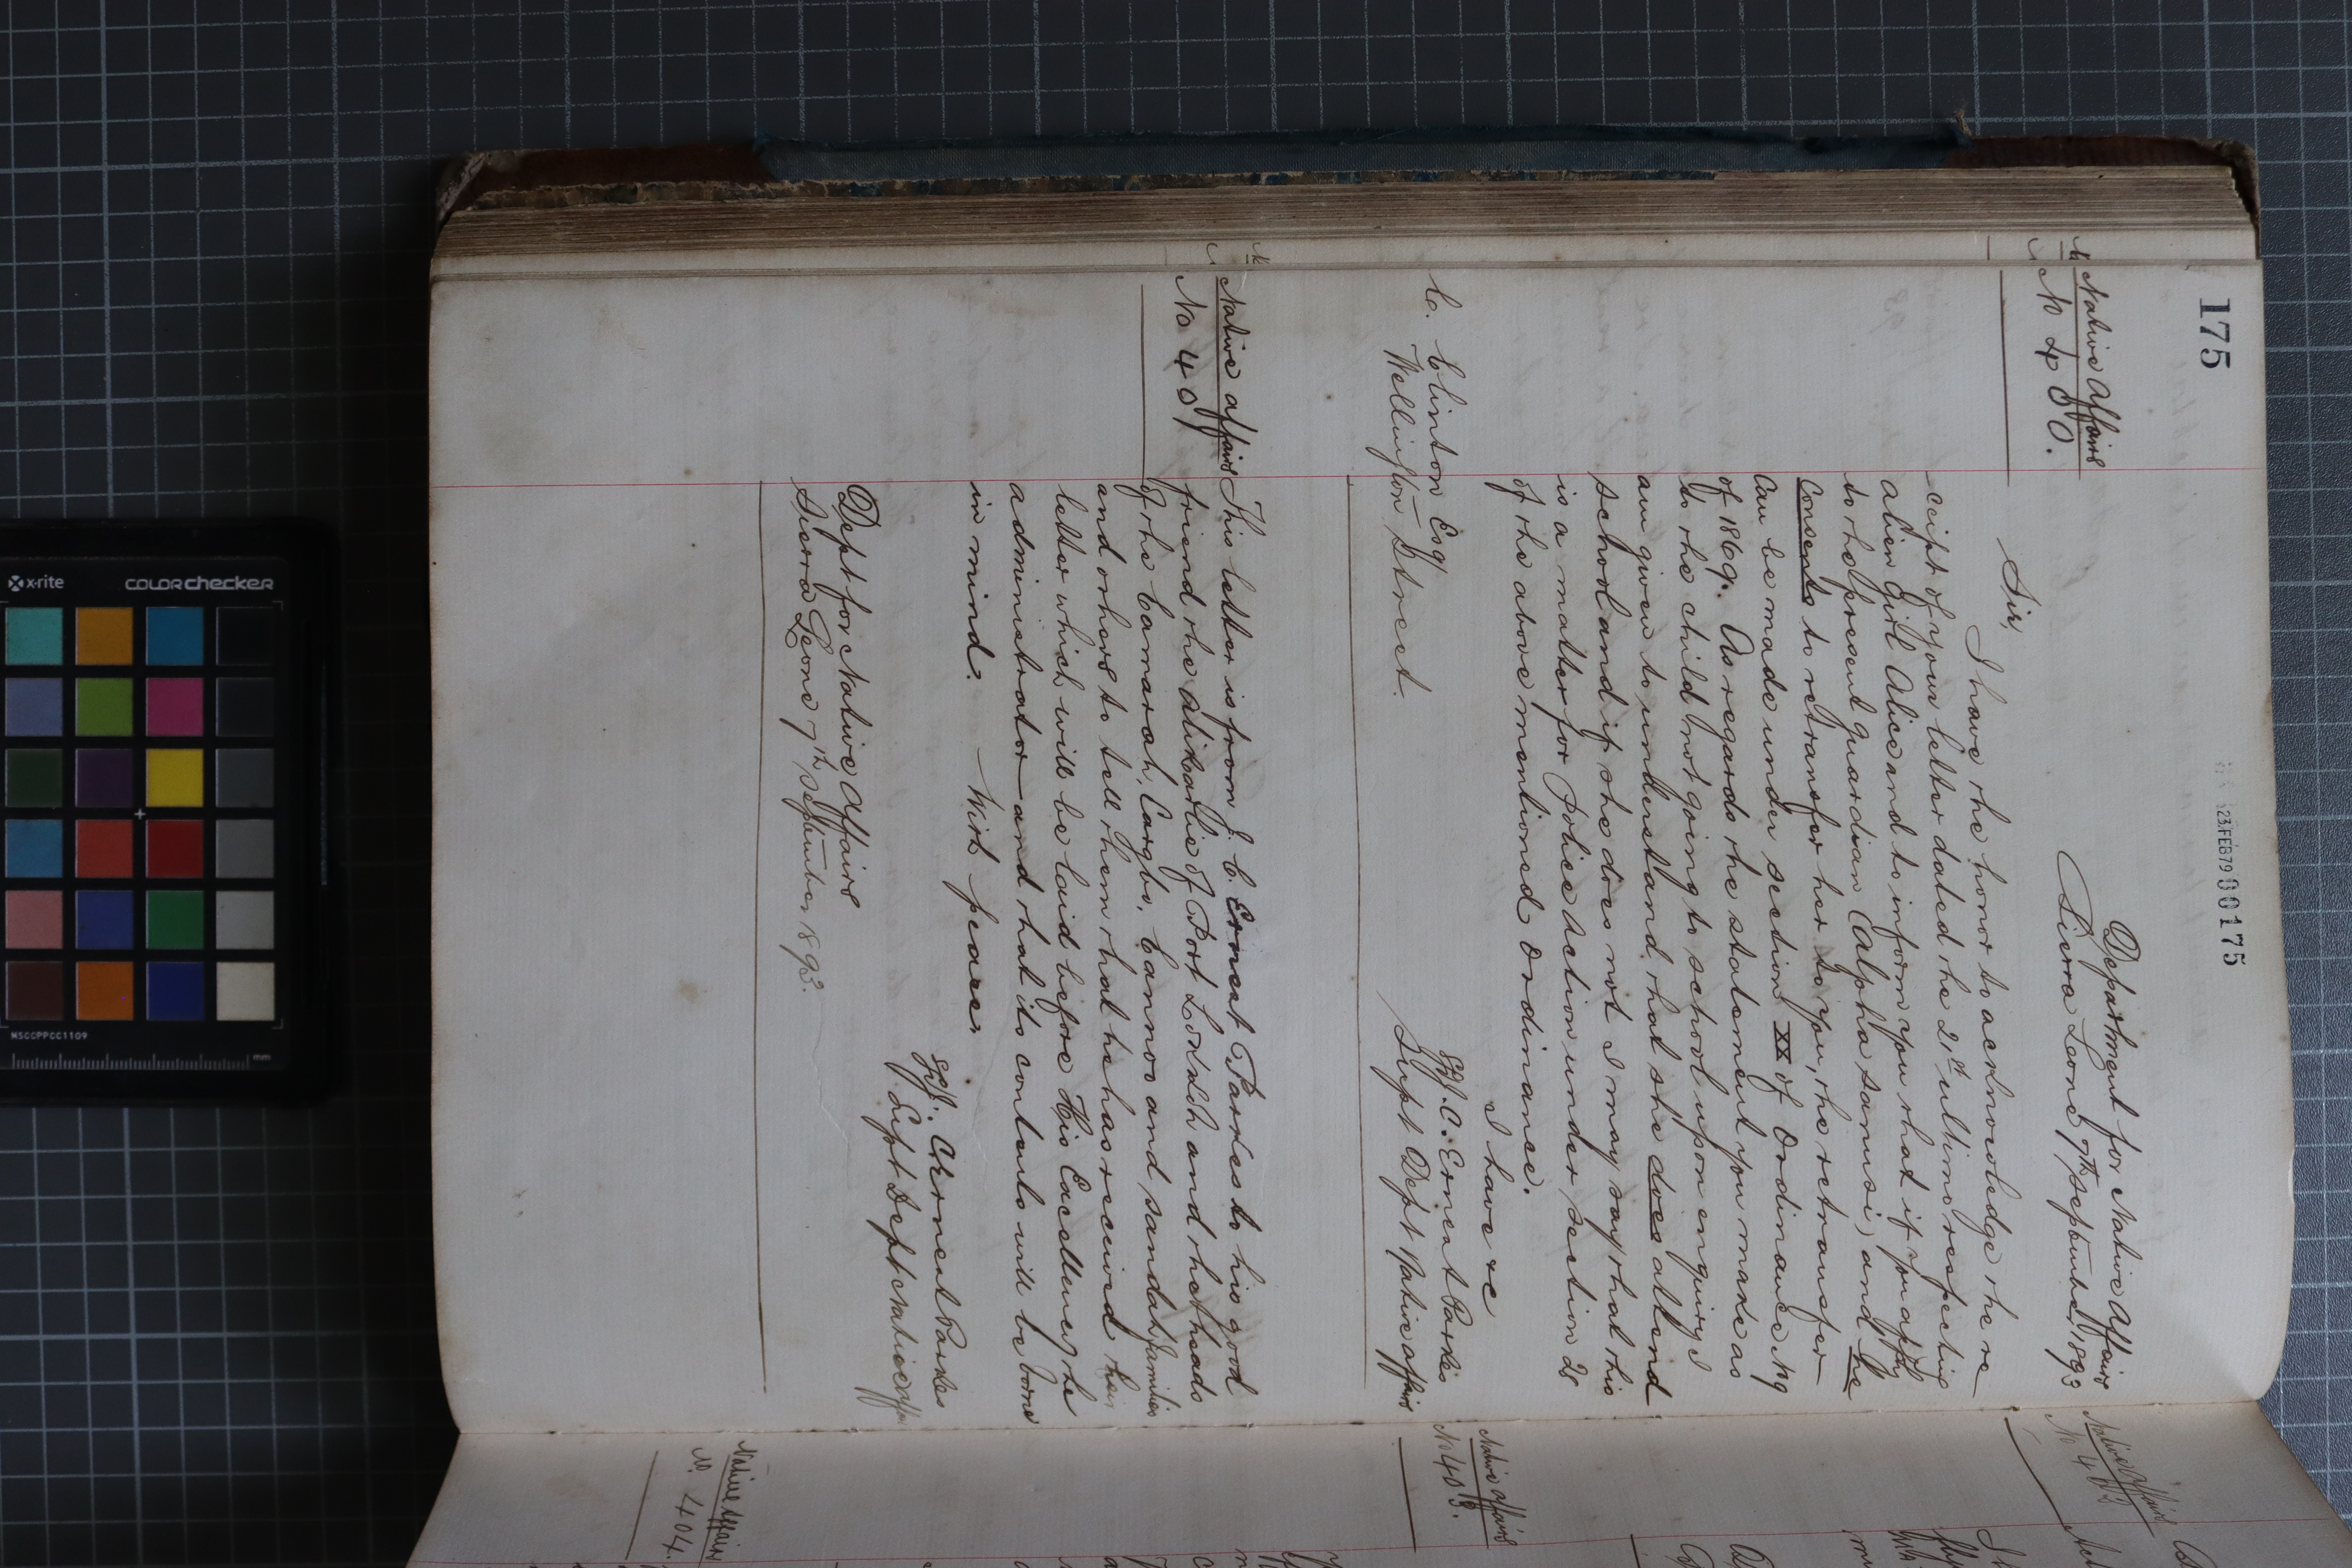 175
23 FEB 79 00175
Department for Native Affairs
Sierra Leone 7th September 1893
Native Affairs
No 400.
Sir,
I have the honor to acknowledge the re
ceipt of your letter dated the 21st ultimo respecting
alien Girl Alice and to inform you that if you apply
to the present guardian Calpha Sanusi, and he
consents to retransfer her to you, the retransfer
can be made under section XX of Ordinance No 9
of 1869. As regards the statement you make as
to the child not going to school upon enquiry I
am given to understand that she does attend
school and if she does not I may say that this
is a matter for Police action under section 28
of the above mentioned Ordinance.
I have &c
Sgd. J. C. Ernest Parkes
Supt Dept Native Affairs
C. Clinton Esq
Wellington Street.
Native Affairs
No 401
This letter is from J. C. Ernest Parkes to his good
friend the Alikarlie of Port Lokkoh and the heads
of the Camarah, Cargbo, Cannoo and Sandah families
and others to tell them that he has received their
letter which will be laid before His Excellency the
administrator and that its contents will be borne
in mind. With peace.
Sgd. J. C. Ernest Parkes
Supt Dept Native Aff
Dept for Native Affairs
Sierra Leone 7th September 1893.
Native Affairs
Native Affairs
No 403.
Native Affairs
No. 404.
x-rite
colorchecker
MSCCPPCC1109
mm